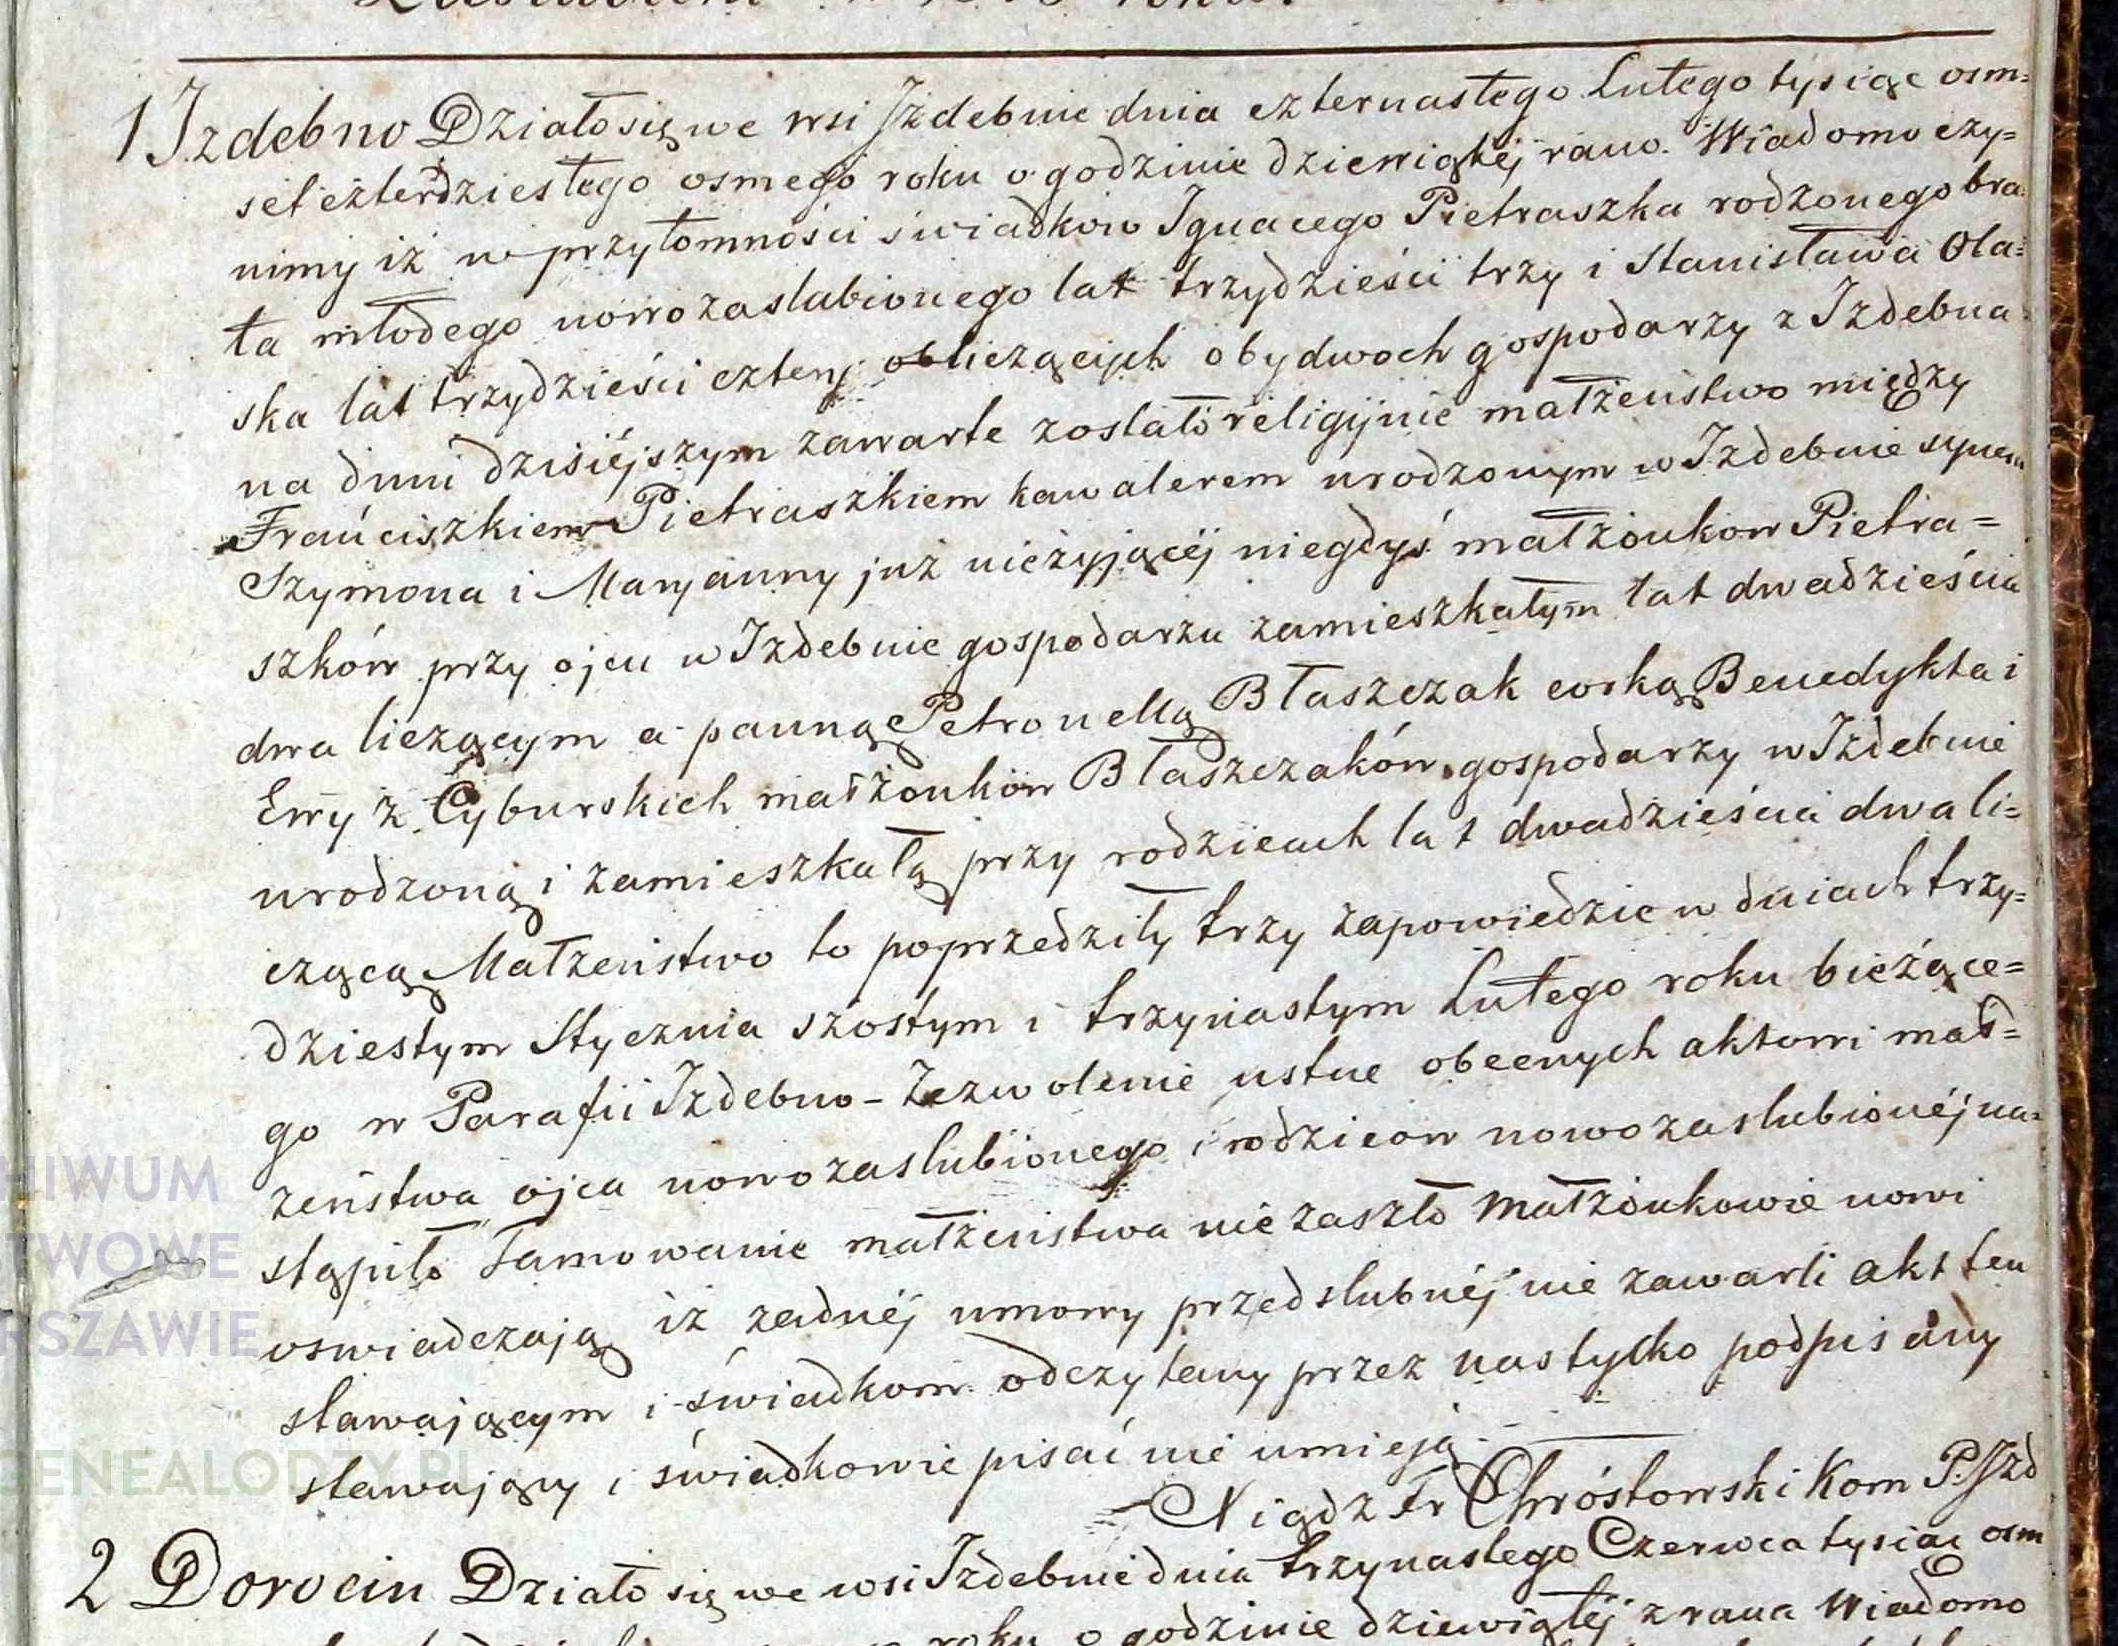 1 Izdebno Działo się we wsi Izdebnie dnia czternastego Lutego tysiąc osm=
set czterdziestego osmego roku o godzinie dziewiątej rano. Wiadomo czy=
nimy iż w przytomności świadków Ignacego Pietraszka rodzonego bra=
ta młodego nowozaslubionego lat trzydzieści trzy i Stanisława Ola=
ska lat trzydzieści cztery obliczących obydwoch gospodarzy z Izdebna
na dniu dzisiéjszym zawarte zostało religijnie małżeństwo między
Franciszkiem Pietraszkiem kawalerem urodzonym w Izdebnie synem
Szymona i Maryanny już nieżyjącéj niegdyś małżonkow Pietra=
szków przy ojcu w Izdebnie gospodarzu zamieszkałym lat dwadzieścia
dwa liczącym a panną Petronellą Błaszczak corką Benedykta i
Ewy z Cyburskich małżonków Błaszczaków gospodarzy w Izdebnie
urodzoną i zamieszkałą przy rodzicach lat dwadzieścia dwa li=
czącą Małżeństwo to poprzedziły trzy zapowiedzie w dniach trzy=
dziestym Stycznia szóstym i trzynastym Lutego roku bieżące=
go w Parafii Izdebno - Zezwolenie ustne obecnych aktowi mał=
żeństwa ojca nowozaslubionego i rodzicow nowozaslubionéj na=
stąpiło Tamowanie małżeństwa nie zaszło Małżonkowie nowi
oswiadczają iż żadnéj umowy przedslubnéj nie zawarli akt ten
stawającym i świadkom odczytany przez nas tylko podpisany
stawający i świadkowie pisać nie umieją.
Xiądz Fr Chróstowski Kom P. Izd
2 Dorocin Działo się we wsi Izdebnie dnia trzynastego Czerwca tysiąc osm
roku o godzinie dziewiątéj z rana Wiadomo
HIWUM
TWOWE
RSZAWIE
GENEALODZY.PL